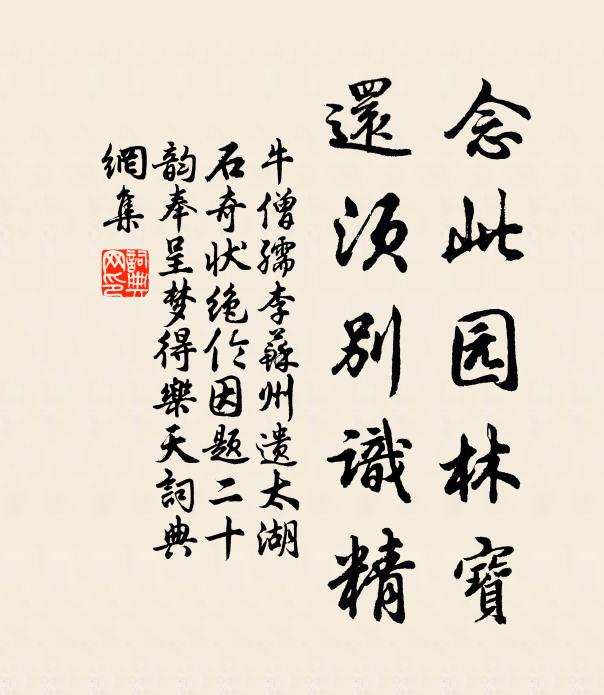 念此园林寶
還須别識精
牛僧孺李蘇州遺太湖
石奇状絶伦因题二十
韵奉呈梦得樂天詞典
網集
詞典
网印